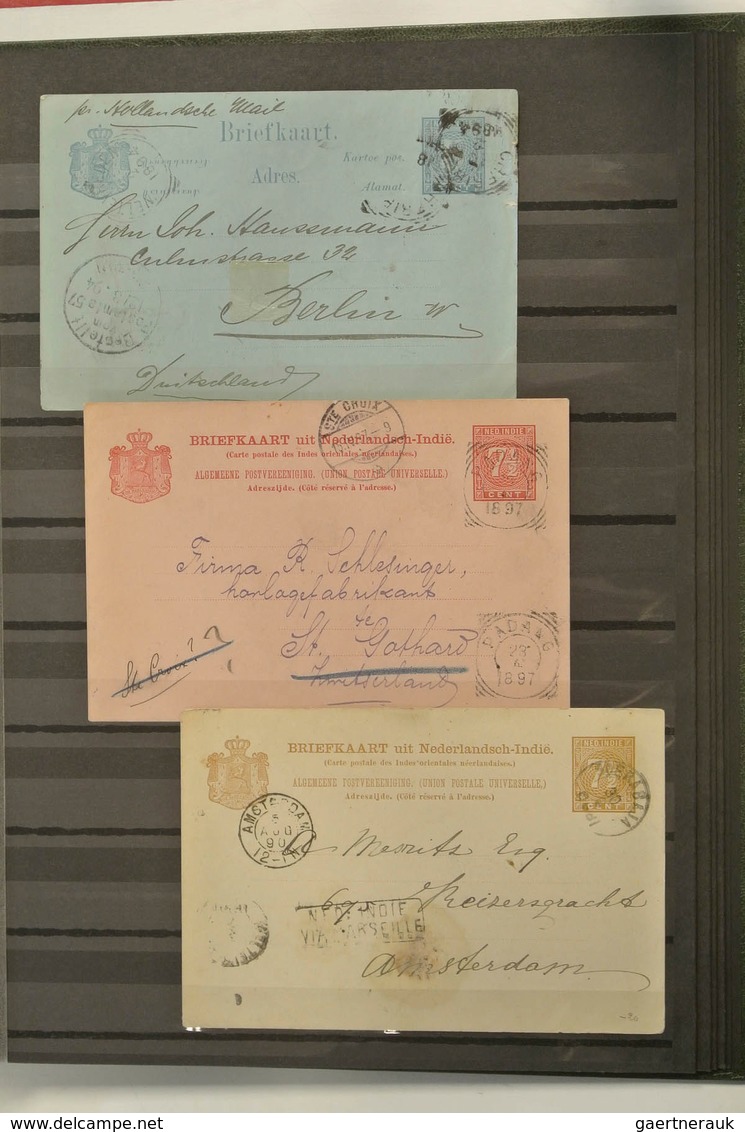 pr. Hollandsche Mail
Briefkaart.
Kartoe pos.
Adres.
Alamat.
1894
Herrn Joh. Haussmann
Culmstrasse 32
Berlin W.
Bestellt
vom
Postamte 57
Duitschland
STE CROIX
BRIEFKAART uit Nederlandsch-Indië.
(Carte postale des Indes orientales néerlandaises.)
ALGEMEENE POSTVEREENIGING. (UNION POSTALE UNIVERSELLE.)
Adreszijde. (Côté réservé à l'adresse.)
NED. INDIE
7½
CENT
1897
Firma R. Schlesinger,
horlogefabrikant
te
St. Gothard
Zwitserland
Ste Croix?
?
PADANG
23
1897
BRIEFKAART uit Nederlandsch-Indië.
(Carte postale des Indes orientales néerlandaises.)
ALGEMEENE POSTVEREENIGING. (UNION POSTALE UNIVERSELLE.)
Adreszijde. (Côté réservé à l'adresse.)
NED. INDIE
7½
CENT
AMSTERDAM
5
AUG
90
12-1N
Mewitz Esq.
Keizersgracht
NED: INDIE
VIA MARSEILLE
Amsterdam
-20
gaertnerauk